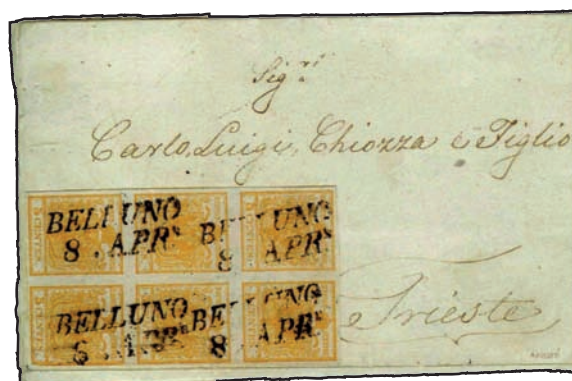 Sig.ri
Carlo Luigi Chiozza e Figlio
BELLUNO
8 . APR.s
BELLUNO
8 APR.s
BELLUNO
8 . APR.s
BELLUNO
8 . APR.s
Trieste